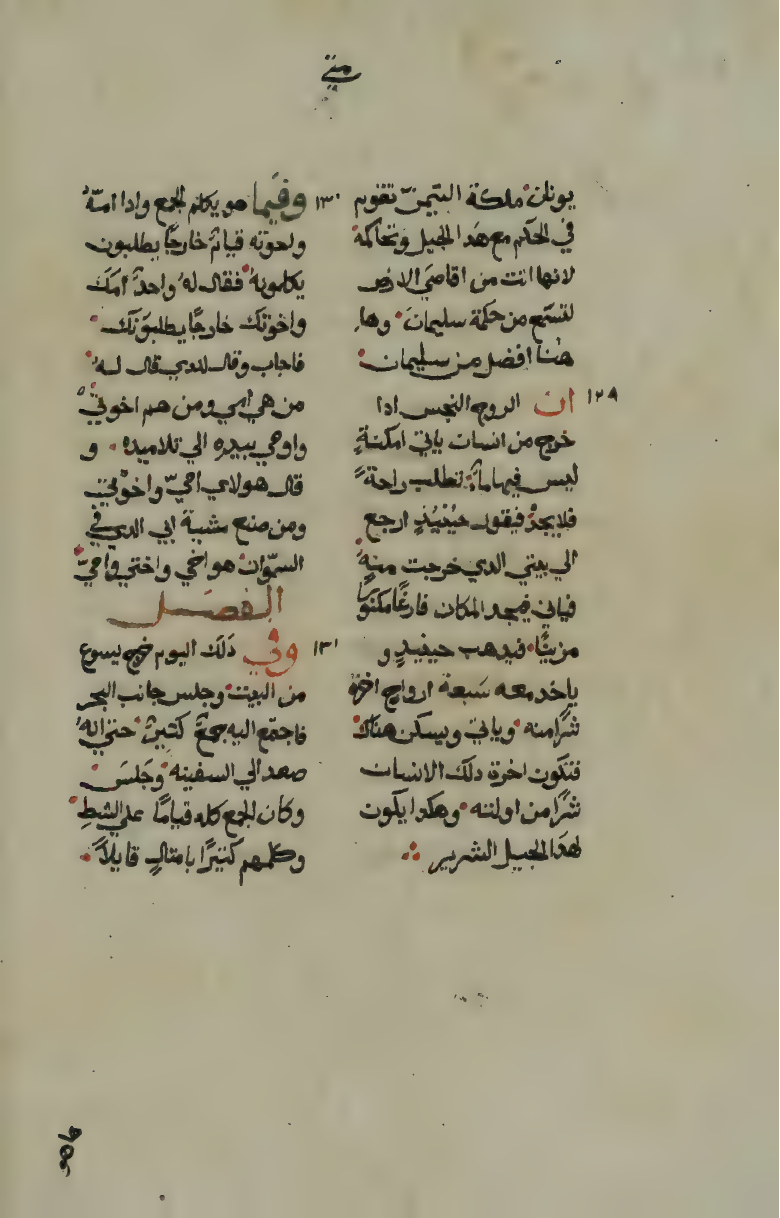 متي
يونان ملكة التيمن تقوم
في الحكم مع هدا الجيل وتحاكمه
لانها اتت من اقاصي الارض
لتسمع من حكمة سليمان وها
هنا افضل من سليمان
١٢٩ ان الروح النجس ادا
خرج من انسان ياتي امكنةٍ
ليس فيها ماءٌ تطلب راحةً
فلا يجدُ فيقول حينيدٍ ارجع
الي بيتي الدي خرجت منه
فياتي فيجد المكان فارغًا مكنوسًا
مزينًا فيدهب حينيدٍ و
ياخد معه سبعة ارواح اخرة
شرًا منه وياتي ويسكن هناك
فتكون اخرة دلك الانسان
شرًا من اولته وهكدا يكون
لهدا الجيل الشرير
١٣٠ وفيما هو يكلم الجمع وادا امهُ
واخوته قيامٌ خارجًا يطلبون
يكلمونهُ فقال لهُ واحدٌ امك
واخوتك خارجًا يطلبونك
فاجاب وقال للدي قال لهُ
من هي امي ومن هم اخوتي
واومي بيده الي تلاميده و
قال هولاي امي واخوتي
ومن صنع مشية ابي الدي في
السموات هو اخي واختي وامي
الفصل
١٣١ وفي دلك اليوم خرج يسوع
من البيت وجلس جانب البحر
فاجتمع اليه جمعٌ كتيرٌ حتي انه
صعد الي السفينه وجلس
وكان الجمع كله قيامًا علي الشط
وكلمهم كتيرًا بامتالٍ قايلاً